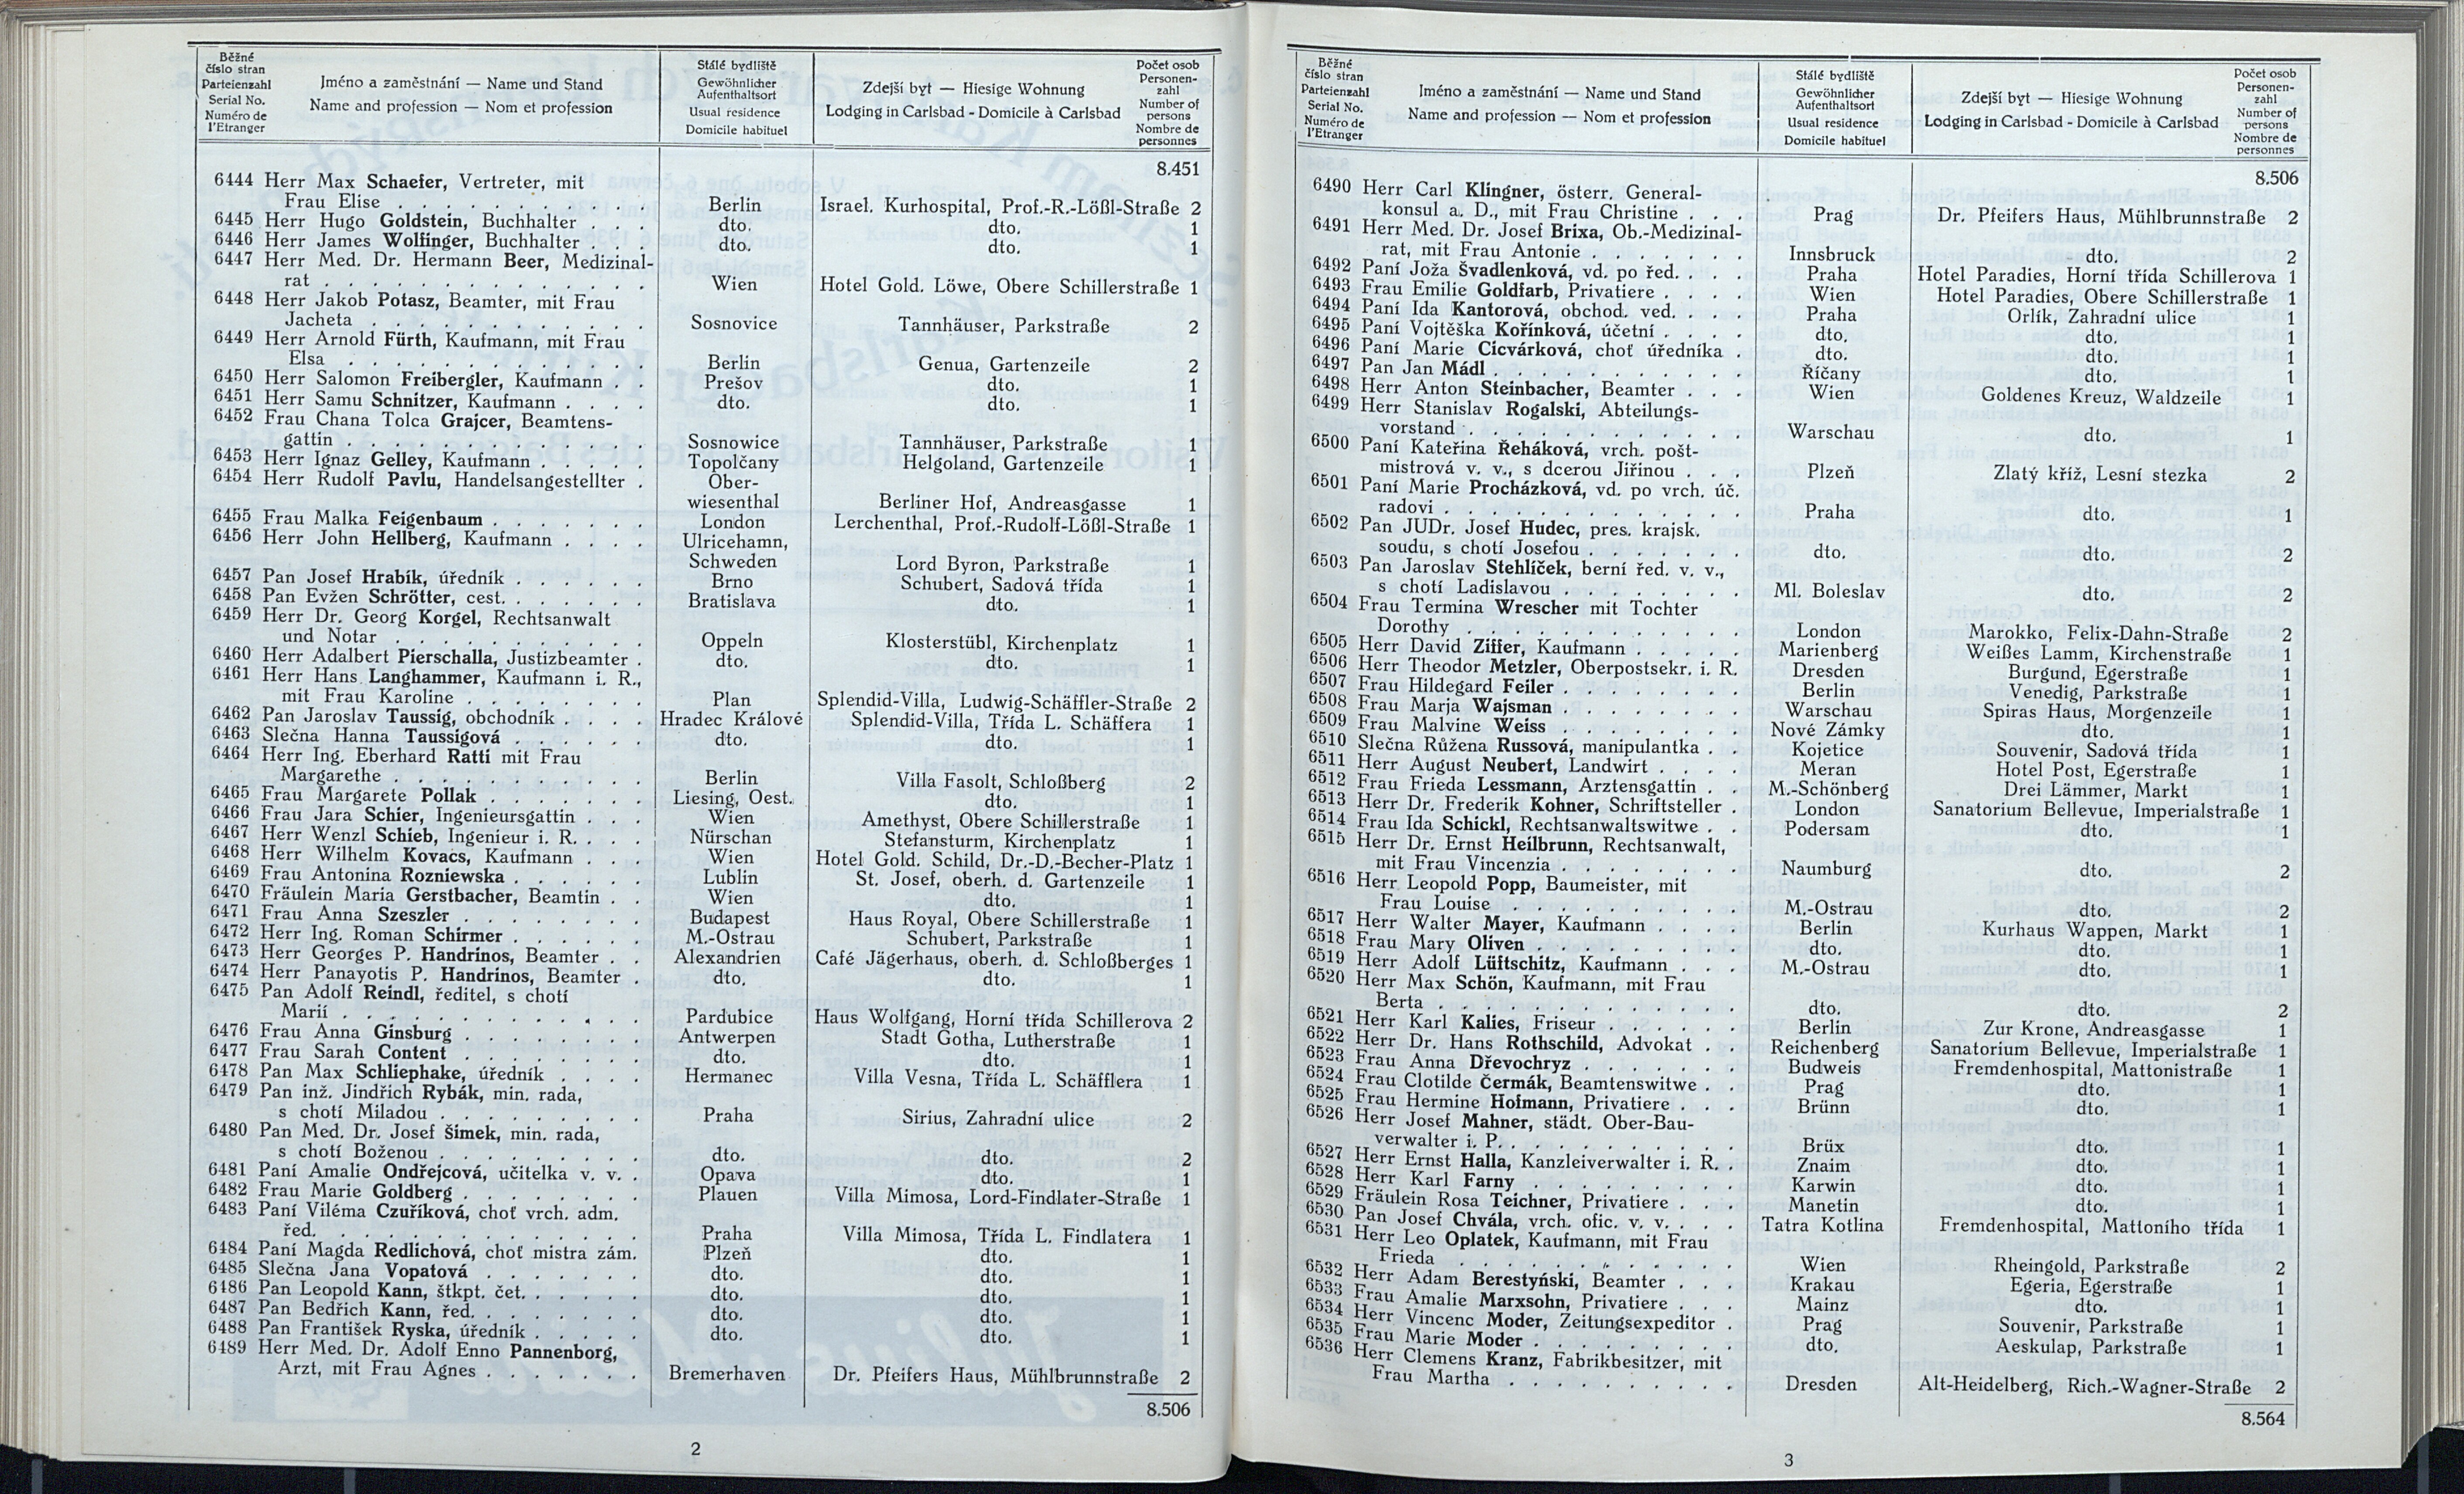 Běžné
číslo stran
Parteienzahl
Serial No.
Numéro de
l'Etranger
Jméno a zaměstnání — Name und Stand
Name and profession — Nom et profession
Stálé bydliště
Gewöhnlicher
Aufenthaltsort
Usual residence
Domicile habituel
Zdejší byt — Hiesige Wohnung
Lodging in Carlsbad - Domicile à Carlsbad
Počet osob
Personen-
zahl
Number of
persons
Nombre de
personnes
8.451
6444 Herr Max Schaefer, Vertreter, mit
Frau Elise . . . . . . . . . . Berlin Israel. Kurhospital, Prof.-R.-Lößl-Straße 2
6445 Herr Hugo Goldstein, Buchhalter . . . dto. dto. 1
6446 Herr James Wolfinger, Buchhalter . . . dto. dto. 1
6447 Herr Med. Dr. Hermann Beer, Medizinal-
rat . . . . . . . . . . . . . Wien Hotel Gold. Löwe, Obere Schillerstraße 1
6448 Herr Jakob Potasz, Beamter, mit Frau
Jacheta . . . . . . . . . . . Sosnovice Tannhäuser, Parkstraße 2
6449 Herr Arnold Fürth, Kaufmann, mit Frau
Elsa . . . . . . . . . . . . Berlin Genua, Gartenzeile 2
6450 Herr Salomon Freibergler, Kaufmann . . Prešov dto. 1
6451 Herr Samu Schnitzer, Kaufmann . . . . dto. dto. 1
6452 Frau Chana Tolca Grajcer, Beamtens-
gattin . . . . . . . . . . . . Sosnowice Tannhäuser, Parkstraße 1
6453 Herr Ignaz Gelley, Kaufmann . . . . . Topolčany Helgoland, Gartenzeile 1
6454 Herr Rudolf Pavlu, Handelsangestellter . Ober-
wiesenthal Berliner Hof, Andreasgasse 1
6455 Frau Malka Feigenbaum . . . . . . . London Lerchenthal, Prof.-Rudolf-Lößl-Straße 1
6456 Herr John Hellberg, Kaufmann . . . . Ulricehamn,
Schweden Lord Byron, Parkstraße 1
6457 Pan Josef Hrabík, úředník . . . . . . Brno Schubert, Sadová třída 1
6458 Pan Evžen Schrötter, cest. . . . . . . Bratislava dto. 1
6459 Herr Dr. Georg Korgel, Rechtsanwalt
und Notar . . . . . . . . . . Oppeln Klosterstübl, Kirchenplatz 1
6460 Herr Adalbert Pierschalla, Justizbeamter . dto. dto. 1
6461 Herr Hans Langhammer, Kaufmann i. R.,
mit Frau Karoline . . . . . . . Plan Splendid-Villa, Ludwig-Schäffler-Straße 2
6462 Pan Jaroslav Taussig, obchodník . . . . Hradec Králové Splendid-Villa, Třída L. Schäffera 1
6463 Slečna Hanna Taussigová . . . . . . dto. dto. 1
6464 Herr Ing. Eberhard Ratti mit Frau
Margarethe . . . . . . . . . . Berlin Villa Fasolt, Schloßberg 2
6465 Frau Margarete Pollak . . . . . . . Liesing, Oest. dto. 1
6466 Frau Jara Schier, Ingenieursgattin . . . Wien Amethyst, Obere Schillerstraße 1
6467 Herr Wenzl Schieb, Ingenieur i. R. . . . Nürschan Stefansturm, Kirchenplatz 1
6468 Herr Wilhelm Kovacs, Kaufmann . . . Wien Hotel Gold. Schild, Dr.-D.-Becher-Platz 1
6469 Frau Antonina Rozniewska . . . . . . Lublin St. Josef, oberh. d. Gartenzeile 1
6470 Fräulein Maria Gerstbacher, Beamtin . . Wien dto. 1
6471 Frau Anna Szeszler . . . . . . . . Budapest Haus Royal, Obere Schillerstraße 1
6472 Herr Ing. Roman Schirmer . . . . . . M.-Ostrau Schubert, Parkstraße 1
6473 Herr Georges P. Handrinos, Beamter . . Alexandrien Café Jägerhaus, oberh. d. Schloßberges 1
6474 Herr Panayotis P. Handrinos, Beamter . dto. dto. 1
6475 Pan Adolf Reindl, ředitel, s chotí
Marií . . . . . . . . . . . . Pardubice Haus Wolfgang, Horní třída Schillerova 2
6476 Frau Anna Ginsburg . . . . . . . . Antwerpen Stadt Gotha, Lutherstraße 1
6477 Frau Sarah Content . . . . . . . . dto. dto. 1
6478 Pan Max Schliephake, úředník . . . . Hermanec Villa Vesna, Třída L. Schäfflera 1
6479 Pan inž. Jindřich Rybák, min. rada,
s chotí Miladou . . . . . . . . Praha Sirius, Zahradní ulice 2
6480 Pan Med. Dr. Josef Šimek, min. rada,
s chotí Boženou . . . . . . . . dto. dto. 2
6481 Paní Amalie Ondřejcová, učitelka v. v. . Opava dto. 1
6482 Frau Marie Goldberg . . . . . . . . Plauen Villa Mimosa, Lord-Findlater-Straße 1
6483 Paní Viléma Czuříková, choť vrch. adm.
řed. . . . . . . . . . . . . . Praha Villa Mimosa, Třída L. Findlatera 1
6484 Paní Magda Redlichová, choť mistra zám. Plzeň dto. 1
6485 Slečna Jana Vopatová . . . . . . . dto. dto. 1
6486 Pan Leopold Kann, štkpt. čet. . . . . . dto. dto. 1
6487 Pan Bedřich Kann, řed. . . . . . . . dto. dto. 1
6488 Pan František Ryska, úředník . . . . . dto. dto. 1
6489 Herr Med. Dr. Adolf Enno Pannenborg,
Arzt, mit Frau Agnes . . . . . . . Bremerhaven Dr. Pfeifers Haus, Mühlbrunnstraße 2
8.506
2
Běžné
číslo stran
Parteienzahl
Serial No.
Numéro de
l'Etranger
Jméno a zaměstnání — Name und Stand
Name and profession — Nom et profession
Stálé bydliště
Gewöhnlicher
Aufenthaltsort
Usual residence
Domicile habituel
Zdejší byt — Hiesige Wohnung
Lodging in Carlsbad - Domicile à Carlsbad
Počet osob
Personen-
zahl
Number of
persons
Nombre de
personnes
8.506
6490 Herr Carl Klingner, österr. General-
konsul a. D., mit Frau Christine . . . Prag Dr. Pfeifers Haus, Mühlbrunnstraße 2
6491 Herr Med. Dr. Josef Brixa, Ob.-Medizinal-
rat, mit Frau Antonie . . . . . . . Innsbruck dto. 2
6492 Paní Joža Švadlenková, vd. po řed. . . . Praha Hotel Paradies, Horní třída Schillerova 1
6493 Frau Emilie Goldfarb, Privatiere . . . . Wien Hotel Paradies, Obere Schillerstraße 1
6494 Paní Ida Kantorová, obchod. ved. . . . Praha Orlík, Zahradní ulice 1
6495 Paní Vojtěška Kořínková, účetní . . . . dto. dto. 1
6496 Paní Marie Cicvárková, choť úředníka . dto. dto. 1
6497 Pan Jan Mádl . . . . . . . . . . Říčany dto. 1
6498 Herr Anton Steinbacher, Beamter . . . Wien Goldenes Kreuz, Waldzeile 1
6499 Herr Stanislav Rogalski, Abteilungs-
vorstand . . . . . . . . . . . Warschau dto. 1
6500 Paní Kateřina Řeháková, vrch. pošt-
mistrová v. v., s dcerou Jiřinou . . . Plzeň Zlatý kříž, Lesní stezka 2
6501 Paní Marie Procházková, vd. po vrch. úč.
radovi . . . . . . . . . . . . Praha dto. 1
6502 Pan JUDr. Josef Hudec, pres. krajsk.
soudu, s chotí Josefou . . . . . . . dto. dto. 2
6503 Pan Jaroslav Stehlíček, berní řed. v. v.,
s chotí Ladislavou . . . . . . . . Ml. Boleslav dto. 2
6504 Frau Termina Wrescher mit Tochter
Dorothy . . . . . . . . . . . London Marokko, Felix-Dahn-Straße 2
6505 Herr David Ziffer, Kaufmann . . . . . Marienberg Weißes Lamm, Kirchenstraße 1
6506 Herr Theodor Metzler, Oberpostsekr. i. R. Dresden Burgund, Egerstraße 1
6507 Frau Hildegard Feiler . . . . . . . . Berlin Venedig, Parkstraße 1
6508 Frau Marja Wajsman . . . . . . . . Warschau Spiras Haus, Morgenzeile 1
6509 Frau Malvine Weiss . . . . . . . . Nové Zámky dto. 1
6510 Slečna Růžena Russová, manipulantka . . Kojetice Souvenir, Sadová třída 1
6511 Herr August Neubert, Landwirt . . . . Meran Hotel Post, Egerstraße 1
6512 Frau Frieda Lessmann, Arztensgattin . . M.-Schönberg Drei Lämmer, Markt 1
6513 Herr Dr. Frederik Kohner, Schriftsteller . London Sanatorium Bellevue, Imperialstraße 1
6514 Frau Ida Schickl, Rechtsanwaltswitwe . . Podersam dto. 1
6515 Herr Dr. Ernst Heilbrunn, Rechtsanwalt,
mit Frau Vincenzia . . . . . . . . Naumburg dto. 2
6516 Herr Leopold Popp, Baumeister, mit
Frau Louise . . . . . . . . . . M.-Ostrau dto. 2
6517 Herr Walter Mayer, Kaufmann . . . . Berlin Kurhaus Wappen, Markt 1
6518 Frau Mary Oliven . . . . . . . . . dto. dto. 1
6519 Herr Adolf Lüftschitz, Kaufmann . . . M.-Ostrau dto. 1
6520 Herr Max Schön, Kaufmann, mit Frau
Berta . . . . . . . . . . . . dto. dto. 2
6521 Herr Karl Kalies, Friseur . . . . . . Berlin Zur Krone, Andreasgasse 1
6522 Herr Dr. Hans Rothschild, Advokat . . Reichenberg Sanatorium Bellevue, Imperialstraße 1
6523 Frau Anna Dřevochryz . . . . . . . Budweis Fremdenhospital, Mattonistraße 1
6524 Frau Clotilde Čermák, Beamtenswitwe . . Prag dto. 1
6525 Frau Hermine Hofmann, Privatiere . . . Brünn dto. 1
6526 Herr Josef Mahner, städt. Ober-Bau-
verwalter i. P. . . . . . . . . . . Brüx dto. 1
6527 Herr Ernst Halla, Kanzleiverwalter i. R. . Znaim dto. 1
6528 Herr Karl Farny . . . . . . . . . Karwin dto. 1
6529 Fräulein Rosa Teichner, Privatiere . . . Manetin dto. 1
6530 Pan Josef Chvála, vrch. ofic. v. v. . . . Tatra Kotlina Fremdenhospital, Mattoniho třída 1
6531 Herr Leo Oplatek, Kaufmann, mit Frau
Frieda . . . . . . . . . . . . Wien Rheingold, Parkstraße 2
6532 Herr Adam Berestyński, Beamter . . . Krakau Egeria, Egerstraße 1
6533 Frau Amalie Marxsohn, Privatiere . . . Mainz dto. 1
6534 Herr Vincenc Moder, Zeitungsexpeditor . Prag Souvenir, Parkstraße 1
6535 Frau Marie Moder . . . . . . . . . dto. Aeskulap, Parkstraße 1
6536 Herr Clemens Kranz, Fabrikbesitzer, mit
Frau Martha . . . . . . . . . . Dresden Alt-Heidelberg, Rich.-Wagner-Straße 2
8.564
3